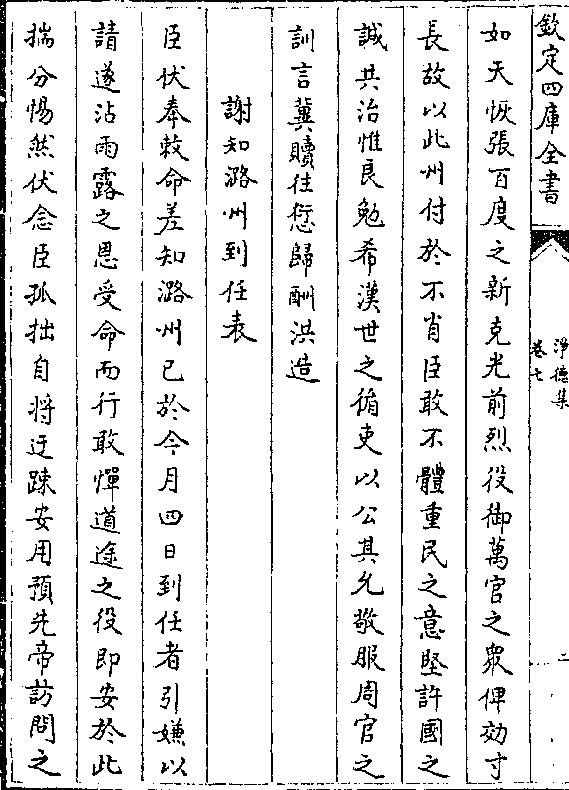 欽定四庫全書
淨德集
卷七
二
如天恢張百度之新克光前烈役御萬官之衆俾効寸
長故以此州付於不肖臣敢不體重民之意堅許國之
誠共治惟良勉希漢世之循吏以公其允敬服周官之
訓言冀贖往愆歸酬洪造
謝知潞州到任表
臣伏奉敕命差知潞州已於今月四日到任者引嫌以
請遂沾雨露之恩受命而行敢憚道途之役即安於此
揣分惕然伏念臣孤拙自將迂踈安用預先帝訪問之